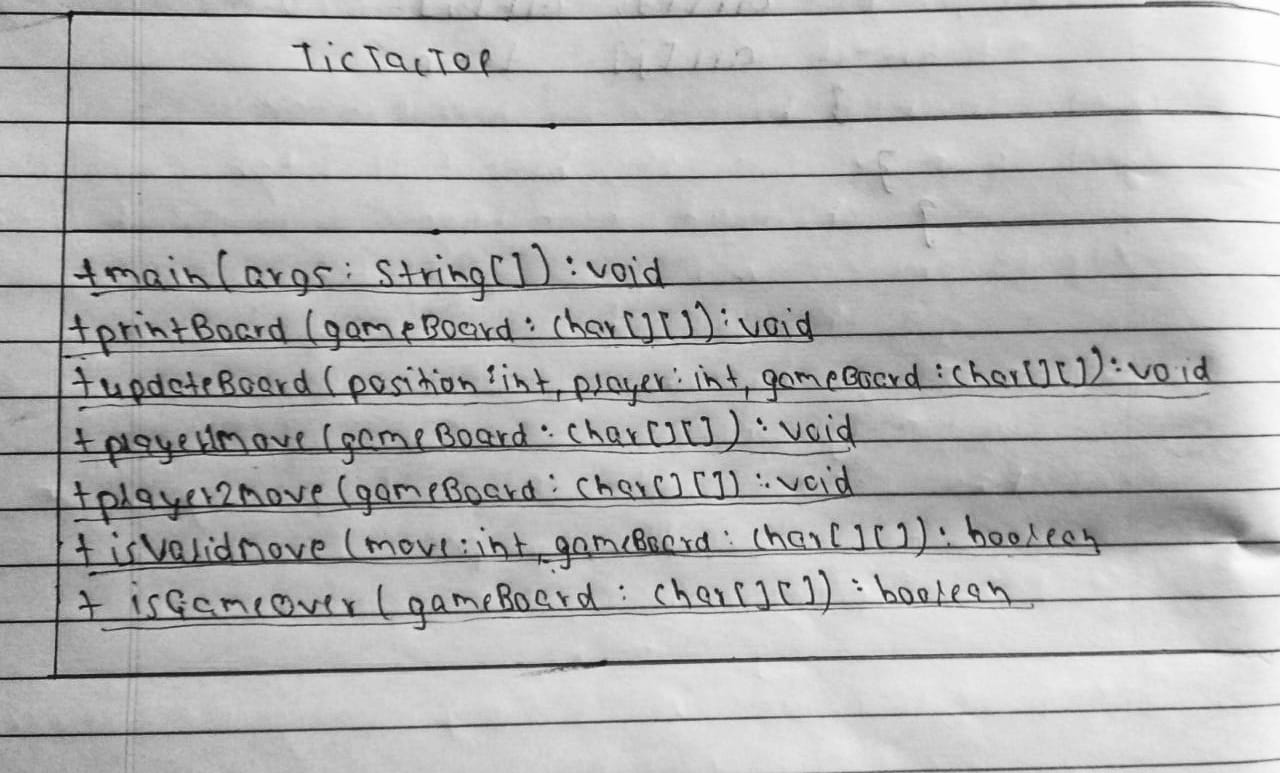 TicTacToe
+main(args: String[]): void
+printBoard(gameBoard: char[][]): void
+updateBoard(position: int, player: int, gameBoard: char[][]): void
+player1move(gameBoard: char[][]): void
+player2move(gameBoard: char[][]): void
+isValidmove(move: int, gameBoard: char[][]): boolean
+isGameOver(gameBoard: char[][]): boolean